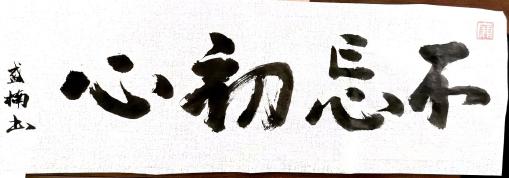 不忘初心
盛楠书